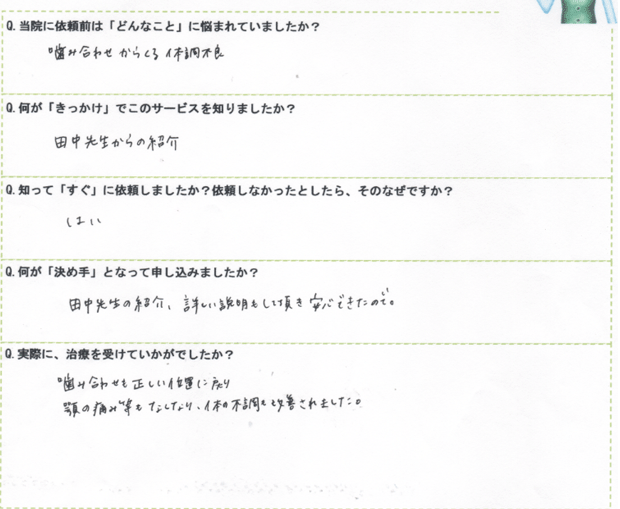 Q.当院に依頼前は「どんなこと」に悩まれていましたか？
噛み合わせからくる体調不良
Q.何が「きっかけ」でこのサービスを知りましたか？
田中先生からの紹介
Q.知って「すぐ」に依頼しましたか？依頼しなかったとしたら、そのなぜですか？
はい
Q.何が「決め手」となって申し込みましたか？
田中先生の紹介、詳しい説明もして頂き安心できたので。
Q.実際に、治療を受けていかがでしたか？
噛み合わせも正しい位置に戻り
顎の痛み等もなくなり、体の不調も改善されました。